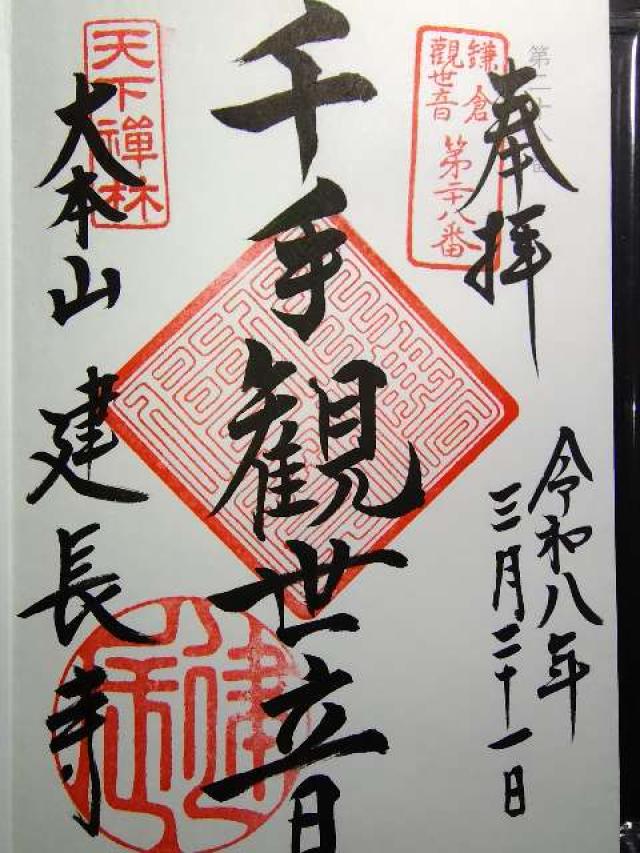 第二十八番
奉拝
鎌倉
觀世音
第二十八番
令和八年
三月二十一日
千手観世音
天下禅林
大本山 建長寺